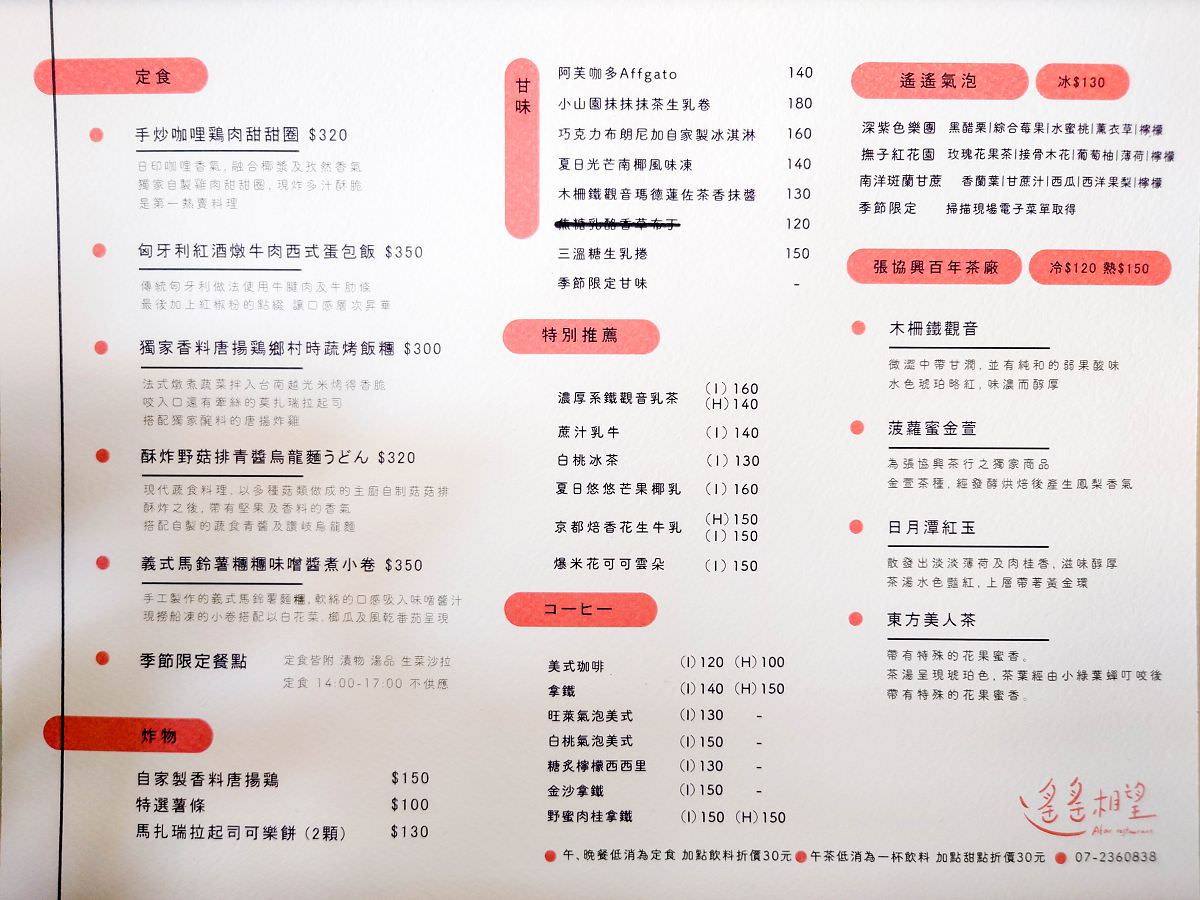 定食
手炒咖哩鶏肉甜甜圈 $320
日印咖哩香氣,融合椰漿及孜然香氣
獨家自製雞肉甜甜圈,現炸多汁酥脆
是第一熱賣料理
匈牙利紅酒燉牛肉西式蛋包飯 $350
傳統匈牙利做法使用牛腱肉及牛肋條
最後加上紅椒粉的點綴 讓口感層次昇華
獨家香料唐揚鶏鄉村時蔬烤飯糰 $300
法式燉煮蔬菜拌入台南越光米烤得香脆
咬入口還有牽絲的莫扎瑞拉起司
搭配獨家醃料的唐揚炸雞
酥炸野菇排青醬烏龍麵うどん $320
現代蔬食料理,以多種菇類做成的主廚自制菇菇排
酥炸之後,帶有堅果及香料的香氣
搭配自製的蔬食青醬及讚岐烏龍麵
義式馬鈴薯糰糰味噌醬煮小卷 $350
手工製作的義式馬鈴薯麵糰,軟綿的口感吸入味噌醬汁
現撈船凍的小卷搭配以白花菜,櫛瓜及風乾番茄呈現
季節限定餐點 定食皆附 漬物 湯品 生菜沙拉
定食 14:00-17:00 不供應
炸物
自家製香料唐揚鶏 $150
特選薯條 $100
馬扎瑞拉起司可樂餅 (2顆) $130
甘味
阿芙咖多Affgato 140
小山園抹抹抹茶生乳卷 180
巧克力布朗尼加自家製冰淇淋 160
夏日光芒南椰風味凍 140
木柵鐵觀音瑪德蓮佐茶香抹醬 130
焦糖乳酪香草布丁 120
三溫糖生乳捲 150
季節限定甘味 -
特別推薦
濃厚系鐵觀音乳茶 (I) 160
(H) 140
蔗汁乳牛 (I) 140
白桃冰茶 (I) 130
夏日悠悠芒果椰乳 (I) 160
京都焙香花生牛乳 (H) 150
(I) 150
爆米花可可雲朵 (I) 150
コーヒー
美式珈啡 (I) 120 (H) 100
拿鐵 (I) 140 (H) 150
旺萊氣泡美式 (I) 130 -
白桃氣泡美式 (I) 150 -
糖炙檸檬西西里 (I) 130 -
金沙拿鐵 (I) 150 -
野蜜肉桂拿鐵 (I) 150 (H) 150
遙遙氣泡 冰$130
深紫色樂園 黑醋栗|綜合莓果|水蜜桃|薰衣草|檸檬
撫子紅花園 玫瑰花果茶|接骨木花|葡萄柚|薄荷|檸檬
南洋斑蘭甘蔗 香蘭葉|甘蔗汁|西瓜|西洋果梨|檸檬
季節限定 掃描現場電子菜單取得
張協興百年茶廠 冷$120 熱$150
木柵鐵觀音
微澀中帶甘潤,並有純和的弱果酸味
水色琥珀略紅,味濃而醇厚
菠蘿蜜金萱
為張協興茶行之獨家商品
金萱茶種,經發酵烘焙後產生鳳梨香氣
日月潭紅玉
散發出淡淡薄荷及肉桂香,滋味醇厚
茶湯水色豔紅,上層帶著黃金環
東方美人茶
帶有特殊的花果蜜香。
茶湯呈現琥珀色,茶葉經由小綠葉蟬叮咬後
帶有特殊的花果蜜香。
遙遙相望
After restaurant
午、晚餐低消為定食 加點飲料折價30元 午茶低消為一杯飲料 加點甜點折價30元 07-2360838